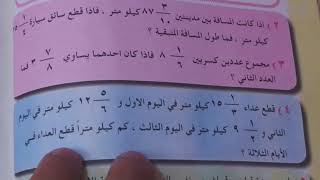 ٢) اذا كانت المسافة بين مدينتين ٨٧ ٣/١٠ كيلو متر ، فاذا قطع سائق سيارة ١/٤ ١٥
كيلو متر ، فما طول المسافة المتبقية ؟
٣) مجموع عددين كسريين ٨ ١/٨ فاذا كان احدهما يساوي ٣ ٧/٨ فما
العدد الثاني ؟
٤) قطع عداء ١٥ ١/٣ كيلو متر في اليوم الاول و ١٢ ٥/٦ كيلو متر في اليوم
الثاني و ٩ ١/٢ كيلو متر في اليوم الثالث ، كم كيلو متراً قطع العداء في
الأيام الثلاثة ؟